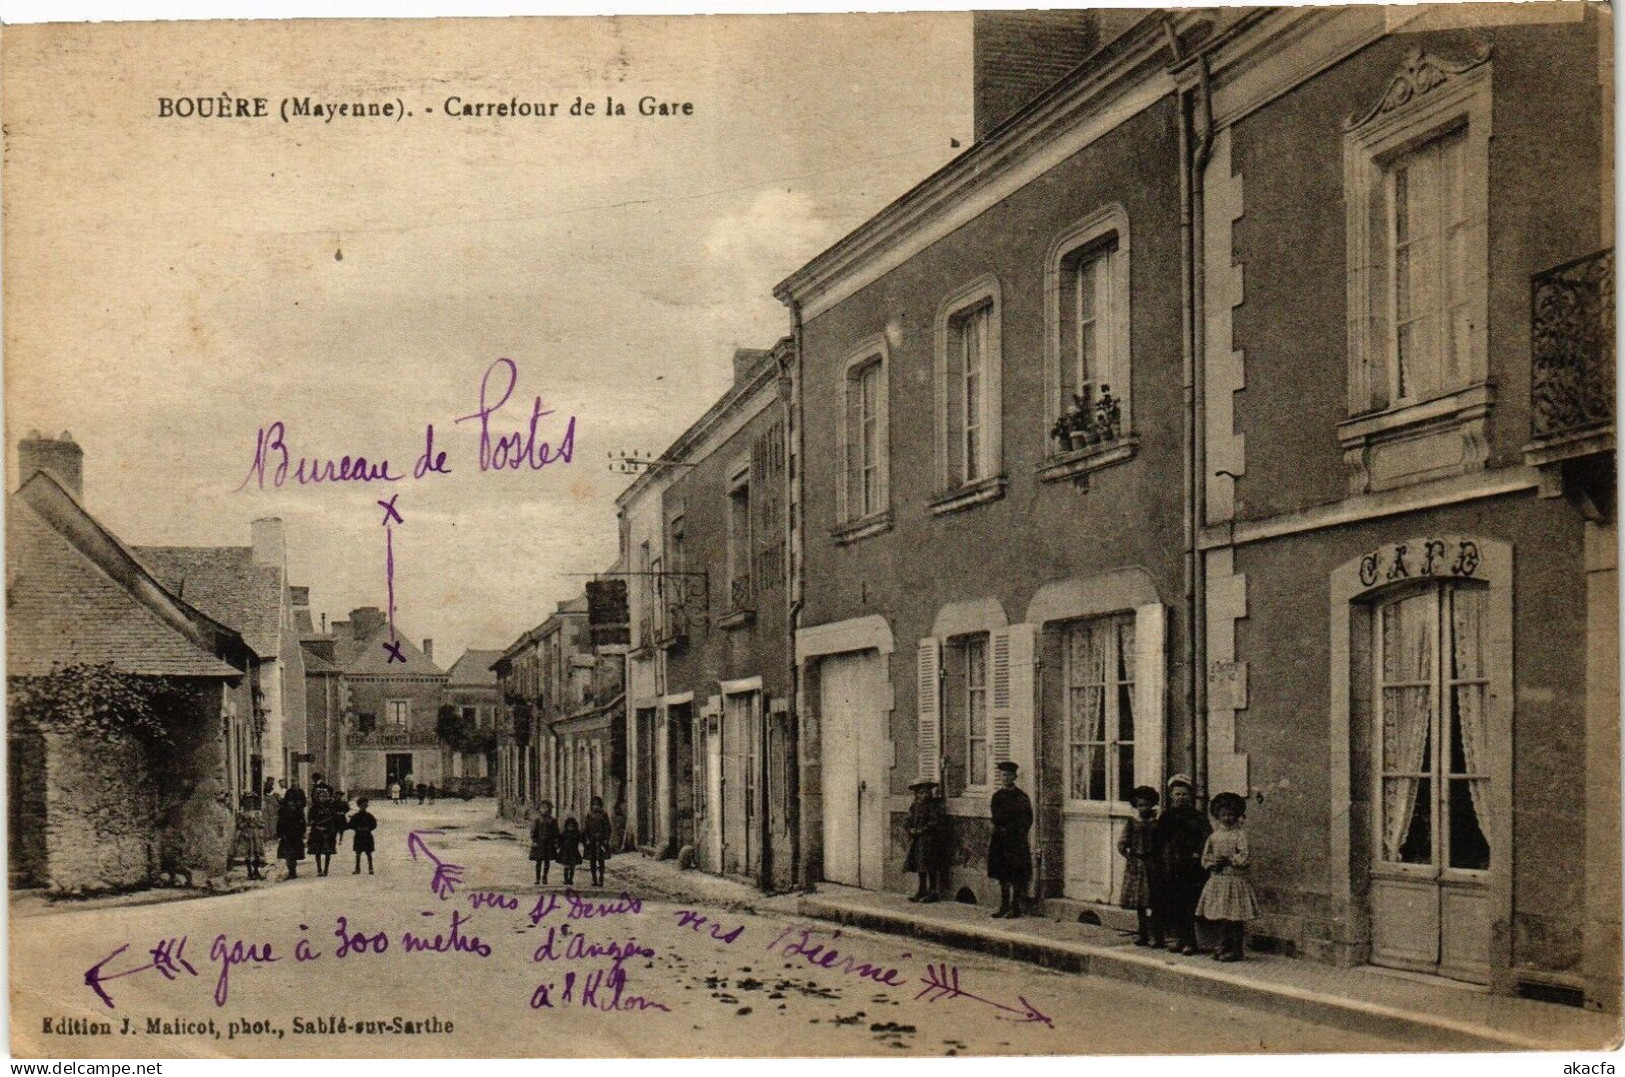 BOUÈRE (Mayenne). - Carrefour de la Gare
Bureau de Postes
CAFE
vers St Denis
d'Angers
à 8 Kilom
gare à 300 mètres
vers Bierné
Edition J. Malicot, phot., Sablé-sur-Sarthe
akacfa